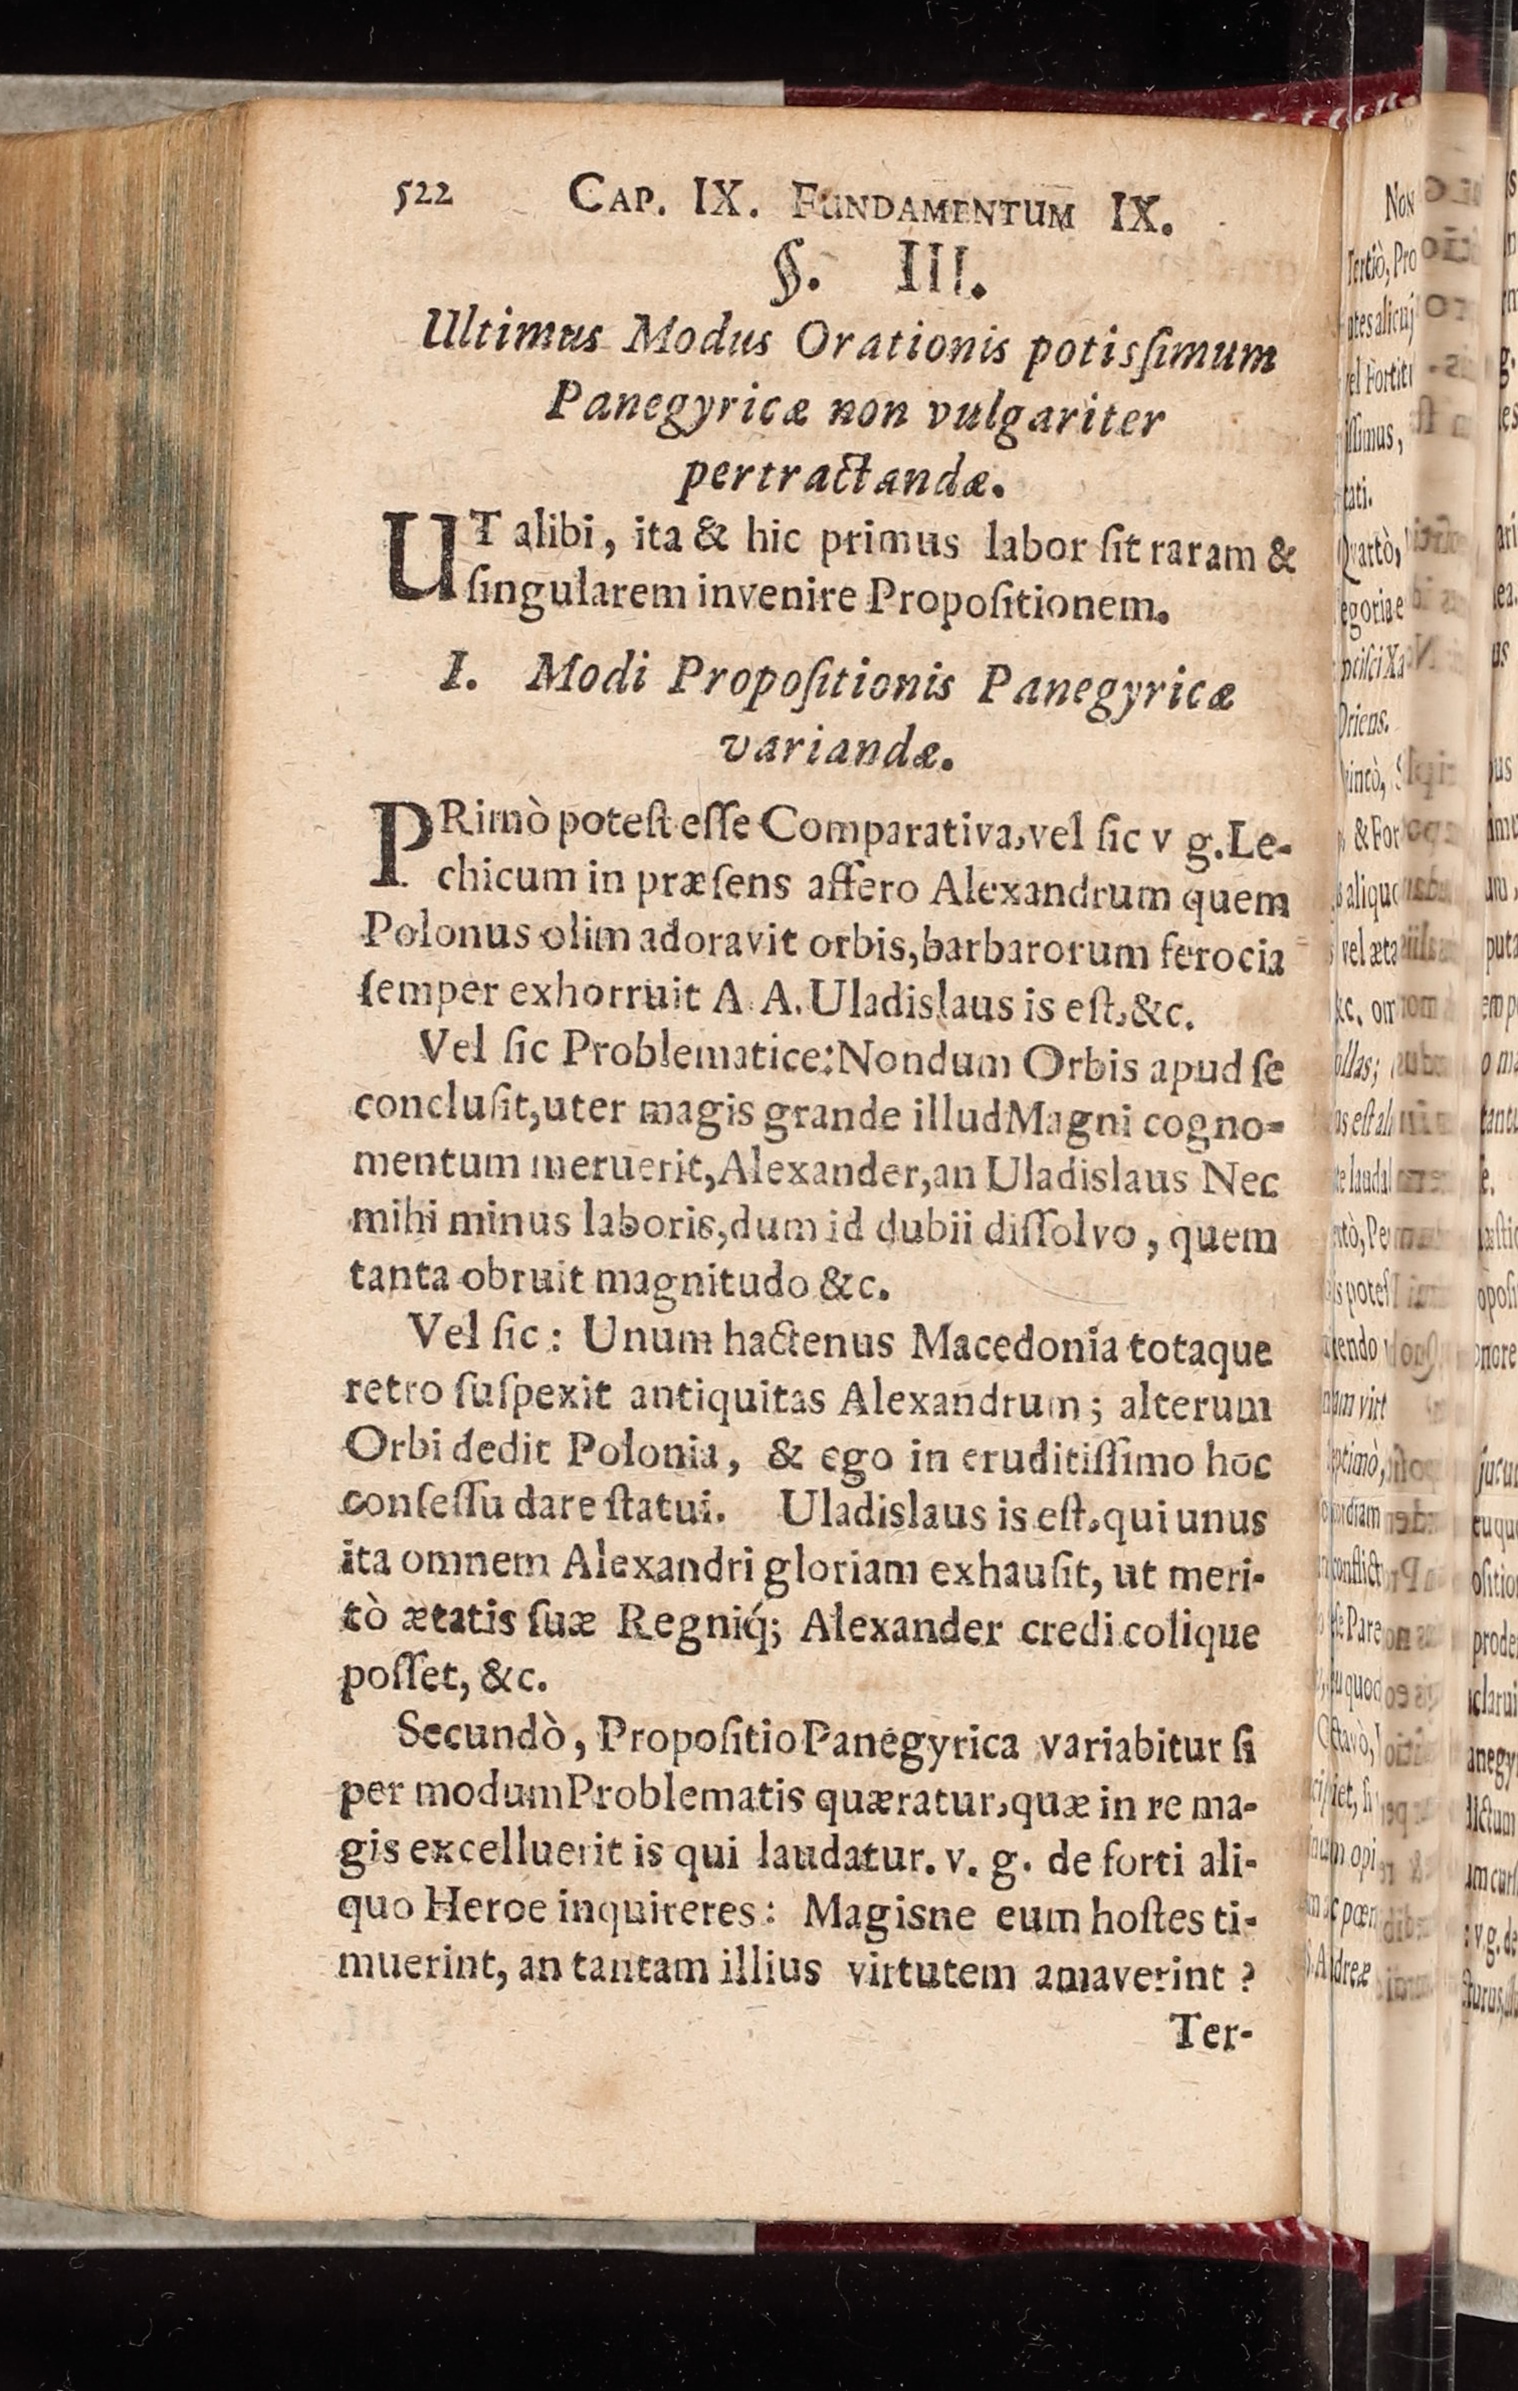 522 CAP. IX. FUNDAMENTUM IX.
§. III.
Ultimus Modus Orationis potisſimum
Panegyricæ non vulgariter
pertractandæ.
UT alibi, ita & hic primus labor ſit raram &
ſingularem invenire Propoſitionem.
I. Modi Propoſitionis Panegyricæ
variandæ.
PRimò poteſt eſſe Comparativa, vel ſic v g. Le-
chicum in præſens affero Alexandrum quem
Polonus olim adoravit orbis, barbarorum ferocia
ſemper exhorruit A. A. Uladislaus is eſt, &c.
Vel ſic Problematice: Nondum Orbis apud ſe
concluſit, uter magis grande illud Magni cogno-
mentum meruerit, Alexander, an Uladislaus Nec
mihi minus laboris, dum id dubii diſſolvo, quem
tanta obruit magnitudo &c.
Vel ſic: Unum hactenus Macedonia totaque
retro ſuſpexit antiquitas Alexandrum; alterum
Orbi dedit Polonia, & ego in eruditiſſimo hoc
conſeſſu dare ſtatui. Uladislaus is eſt, qui unus
ita omnem Alexandri gloriam exhauſit, ut meri-
tò ætatis ſuæ Regniq́; Alexander credi colique
poſſet, &c.
Secundò, Propoſitio Panegyrica variabitur ſi
per modum Problematis quæratur, quæ in re ma-
gis excelluerit is qui laudatur. v. g. de forti ali-
quo Heroe inquireres: Magisne eum hoſtes ti-
muerint, an tantam illius virtutem amaverint?
Ter-